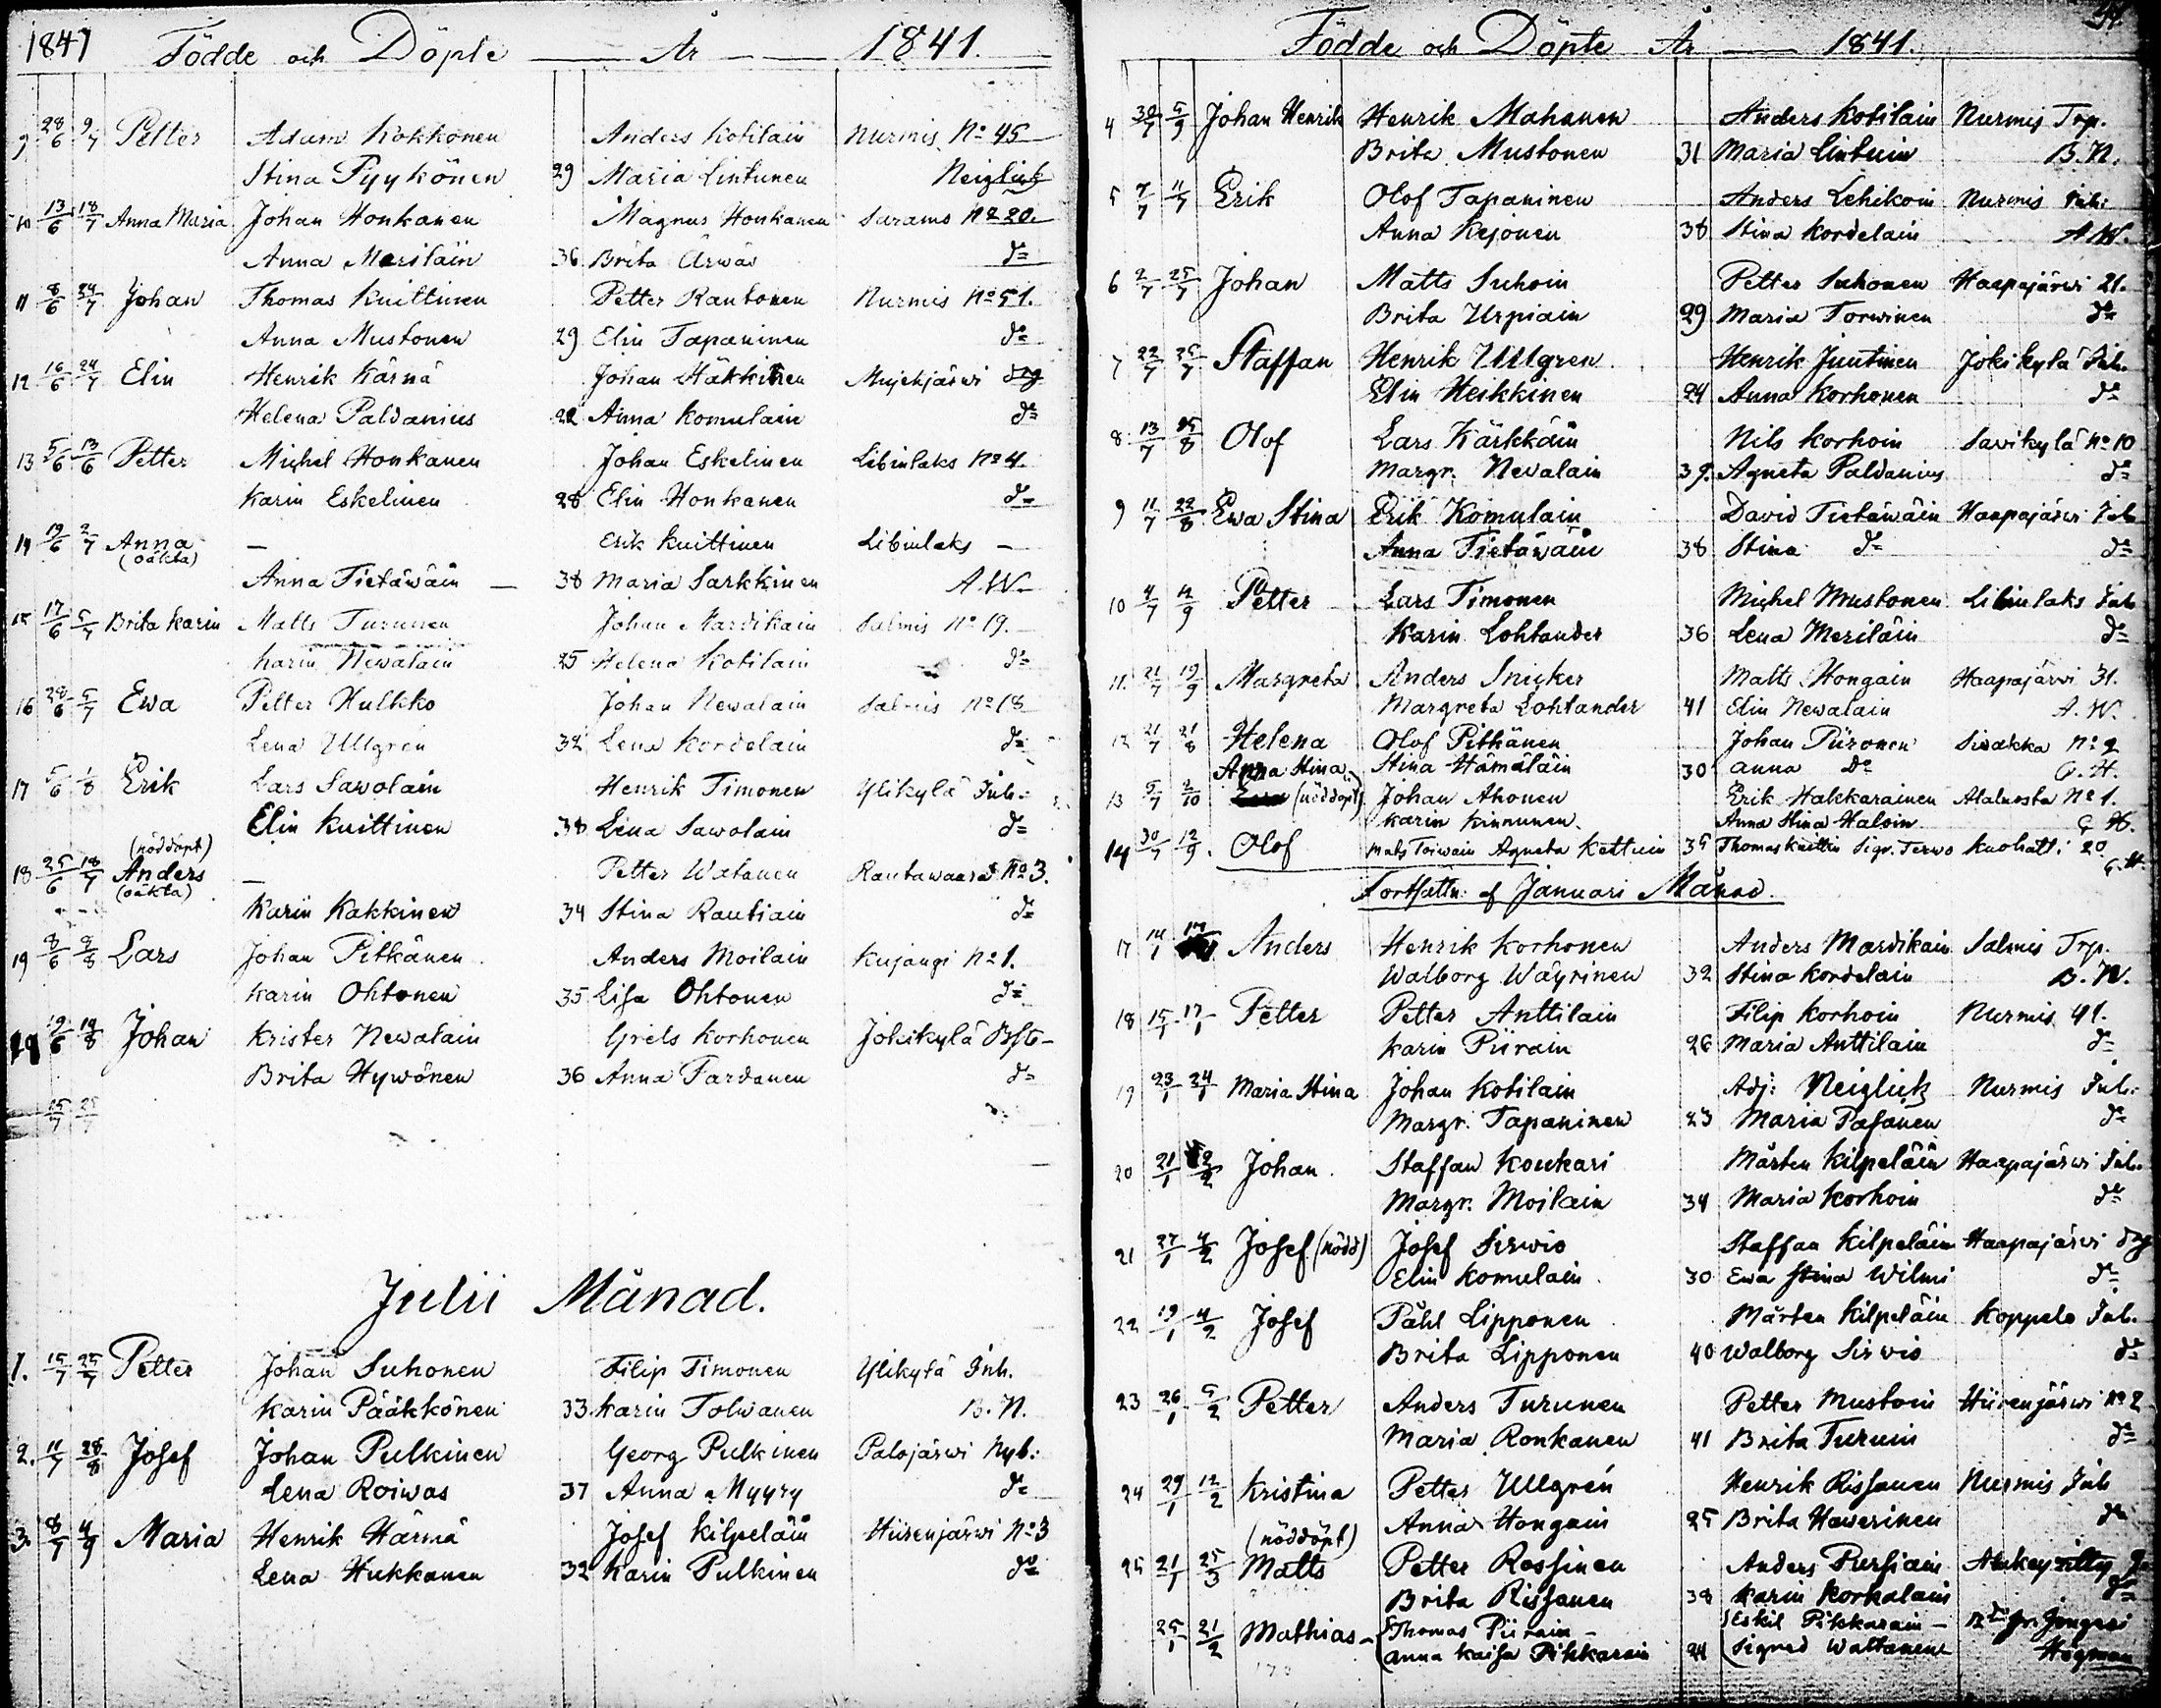 1841 Födde och Döpte År 1841.
9 28/6 9/7 Petter Adam Kokkonen Anders Kotilain Nurmis No 45
Stina Pyykönen 29 Maria Lintunen Neiglick
10 13/6 18/7 Anna Maria Johan Honkanen Magnus Honkanen Saramo No 20.
Anna Meriläin 36 Brita Ärwäs do
11 8/6 24/7 Johan Thomas Knittinen Petter Rautonen Nurmis No 51.
Anna Mustonen 29 Elin Tapaninen do
12 16/6 24/7 Elin Henrik Kärnä Johan Häkkinen Mujehjärwi
Helena Paldanius 22 Anna Komulain do
13 5/6 13/6 Petter Michel Honkanen Johan Eskelinen Libinlaks No 4.
Karin Eskelinen 28 Elin Honkanen do
14 19/6 2/7 Anna — Erik Knittinen Libinlaks —
(oäkta)
Anna Tietäwäin — 38 Maria Sarkkinen A.W.
15 17/6 5/7 Brita Karin Matts Turunen Johan Mardikain Salmis No 19.
Karin Newalain 25 Helena Kotilain do
16 28/6 5/7 Ewa Petter Hulkko Johan Newalain Salmis No 18
Lena Ullgren 32 Lena Kordelain do
17 5/6 1/8 Erik Lars Sawolain Henrik Timonen Ylikylä Inh.
Elin Knittinen 38 Lena Sawolain do
(nöddöpt)
18 25/6 18/7 Anders — Petter Watanen Rautawaara No 3.
(oäkta)
Karin Kakkinen 34 Stina Rautiain do
19 8/6 9/8 Lars Johan Pitkänen Anders Moilain Kujangi No 1.
Karin Ohtonen 35 Lisa Ohtonen do
19/6 19/8 Johan Krister Newalain Grels Korhonen Jokikylä Bst
Brita Hywönen 36 Anna Pardanen do
25/7 25/7
Julii Månad.
1. 15/7 25/7 Petter Johan Suhonen Filip Timonen Ylikylä Inh.
Karin Pääkkönen 33 Karin Tolwanen B.N.
2. 11/7 28/8 Josef Johan Pulkinen Georg Pulkinen Palojärwi Nyb:
Lena Roiwas 37 Anna Myyry do
3. 8/7 4/9 Maria Henrik Härmä Josef Kilpeläin Hiirenjärwi No 3
Lena Hukkanen 32 Karin Pulkinen do
Födde och Döpte År 1841.
4 30/7 5/9 Johan Henrik Henrik Mahanen Anders Kotilain Nurmis Trp.
Brita Mustonen 31 Maria Lintuin B.N.
5 7/7 11/7 Erik Olof Tapaninen Anders Lehikoin Nurmis Inh:
Anna Kejonen 38 Stina Kordelain A.W.
6 2/7 25/7 Johan Matts Suhoin Petter Suhonen Haapajärwi 21.
Brita Urpiain 29 Maria Torwinen do
7 22/7 25/7 Staffan Henrik Ullgren Henrik Juutinen Jokikylä Inh.
Elin Heikkinen 24 Anna Korhonen do
8 13/7 15/8 Olof Lars Kärkkäin Nils Korhoin Savikylä No 10
Margr. Nevalain 39. Agneta Paldanius do
9 11/7 22/8 Ewa Stina Erik Komulain David Tietäwäin Haapajärwi Inh
Anna Tietäwäin 38 Stina do do
10 4/7 12/9 Petter Lars Timonen Michel Mustonen Libinlaks Inh
Karin Lohlander 36 Lena Meriläin do
11. 21/7 19/9 Margreta Anders Snicker Matts Hongain Haapajärwi 31.
Margreta Lohlander 41 Elin Newalain A.W.
12 21/7 21/8 Helena Olof Pitkänen Johan Piironen Siwakka No 2
Stina Hämäläin 30 Anna do G.H.
Anna Stina
13 5/7 2/10 (nöddöpt) Johan Ahonen Erik Hakkarainen Alaluosta No 1.
Karin Kinnunen. Anna Stina Haloin G H.
14 30/7 12/9. Olof Mats Toiwain Agneta Kettuin 35 Thomas Kettin Sigr. Terwo Kuohatti 20
G.H.
Fortsättn: af Januari Månad.
17 14/1 17 Anders Henrik Korhonen Anders Mardikain Salmis Trp.
Walborg Wäyrinen 32 Stina Kordelain B.N.
18 15/1 17/1 Petter Petter Anttilain Filip Korhoin Nurmis 41.
Karin Piirain 26 Maria Anttilain do
19 23/1 24/1 Maria Stina Johan Kotilain Adj: Neiglick Nurmis Inh:
Margr. Tapaninen 23 Maria Pasanen do
20 21/1 2/2 Johan Staffan Koukari Mårten Kilpeläin Haapajärwi Inh.
Margr. Moilain 34 Maria Korhoin do
21 27/1 4/2 Josef (nödd) Josef Sirwio Staffan Kilpeläin Haapajärwi
Elin Komulain 30 Ewa Stina Wilmi do
22 19/1 4/2 Josef Påhl Lipponen Mårten Kilpeläin Koppelo Inh.
Brita Lipponen 40 Walborg Sirwio do
23 26/1 5/2 Petter Anders Turunen Petter Mustoin Hiirenjärwi No 2
Maria Ronkanen 41 Brita Turuin do
24 29/1 12/2 Kristina Petter Ullgrén Henrik Rissanen Nurmis Inh
Anna Hongain 25 Brita Hawerinen do
(nöddöpt)
25 21/1 25/3 Matts Petter Rossinen Anders Pursiain
Brita Rissanen 38 Karin Korkalain do
25/1 21/2 Mathias Thomas Piirain Eskil Pikkarain Jongeri
Anna Kaisa Pikkarain 24 Signed Waltanen Högman